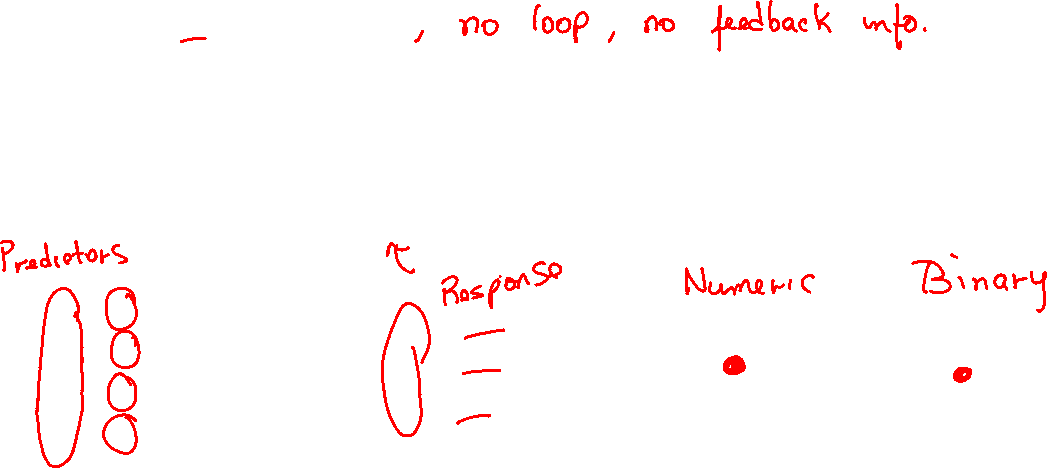 , no loop, no feedback info.
Predictors
Response
Numeric
Binary